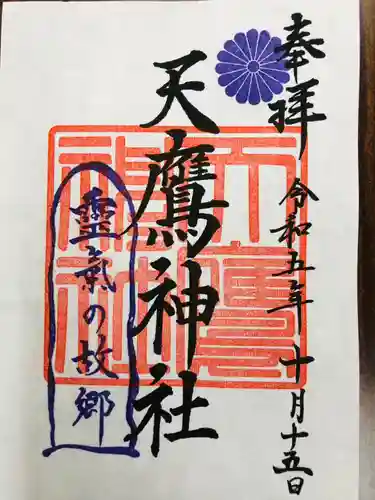 奉拝
令和五年十月十五日
天鷹神社
靈氣の故郷
天鷹神社